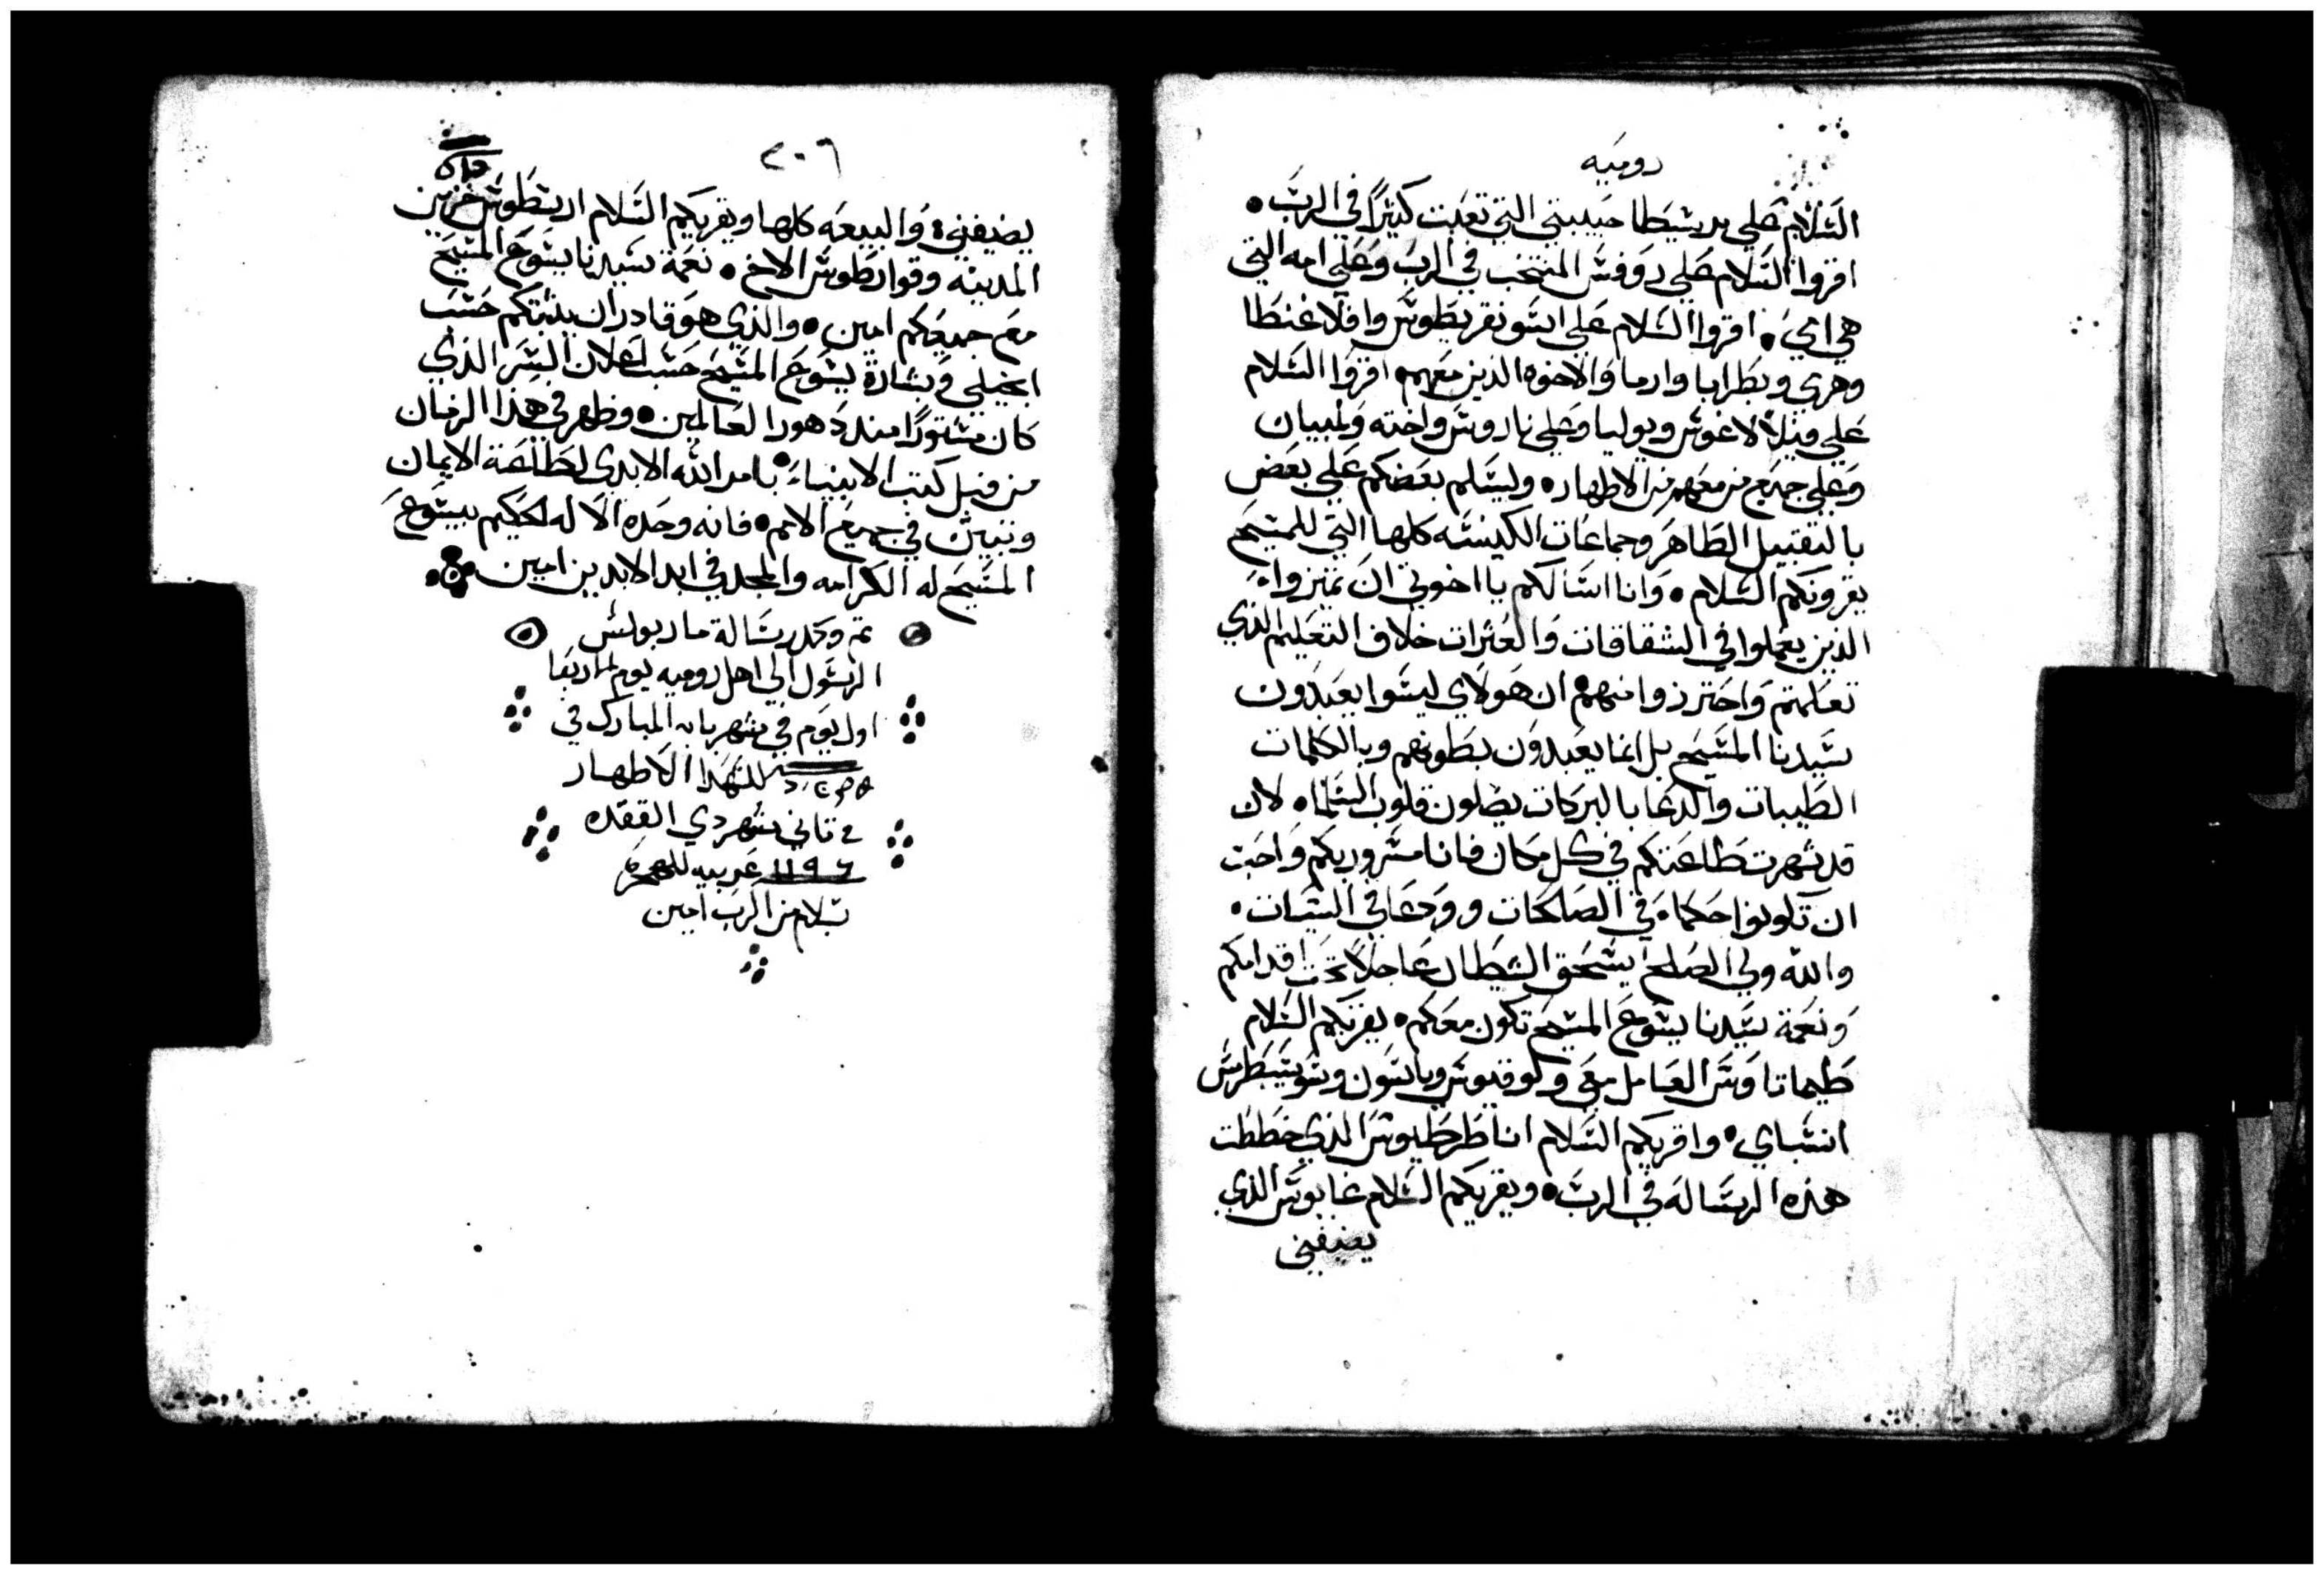 روميه
السَلام علي برشيطا حبيبتي التي تعبت كثيرًا في الرب •
اقروا السَلام علي روفس المنتخب في الرب وعلي امه التي
هي امي • اقروا السَلام على اسونقريطوس وافلاغنطا
وهري وبطرابا وارما والاخوه الذين معهم • اقروا السَلام
علي فيلالاغوس ويوليا وعلي ناروس واخته ولمبيان
وعلي جميع من معهم من الاطهار • وليسلم بعضكم علي بعض
بالتقبيل الطاهر وجماعات الكنيسه كلها التي للمسيح
يقرونكم السلام • وانا اسالكم يا اخوتي ان تميزوا
الذين يعملوا في الشقاقات والعثرات خلاف التعليم الذي
تعلمتم واحترزوا منهم • ان هولاي ليسوا يعبدون
سيدنا المسيح بل انما يعبدون بطونهم وبالكلمات
الطيبات والدعا بالبركات يضلون قلوب السلما • لان
قد شهرت طاعتكم في كل مكان فانا مسرور بكم واحب
ان تكونوا حكما في الصلحات وودعا في السيات •
والله ولي الصلح يسحق الشيطان عاجلاً تحت اقدامكم
ونعمة سيدنا يسوع المسيح تكون معكم • يقريكم السلام
طيماتاوس العامل معي ولوقيوس وياسون وسوسيبطرس
انسباي • واقريكم السلام انا طرطيوس الذي خططت
هذه الرسالة في الرب • ويقريكم السلام غايوس الذي
يضيفني
٢٠٦
يضيفني • والبيعه كلها ويقريكم السلام ارسطوس خزين
المدينه وقوارطوس الاخ • نعمة سيدنا يسوع المسيح
مع جميعكم امين • والذي هو قادر ان يثبتكم حسب
انجيلي وبشارة يسوع المسيح حسب اعلان السر الذي
كان مستورًا منذ دهور العالمين • وظهر في هذا الزمان
من قبل كتب الانبياء • بامر الله الابدي لطاعة الايمان
وتبين في جميع الامم • فانه وحده الاله الحكيم بيسوع
المسيح له الكرامه والمجد في ابد الابدين امين
تم وكمل رسالة مار بولس
الرسول الي اهل روميه يوم الاربعا
اول يوم في شهر بابه المبارك في
للشهدا الاطهار
في تاني شهر دي القعده
١١٩٦ عربيه للهجره
بسلام من الرب امين